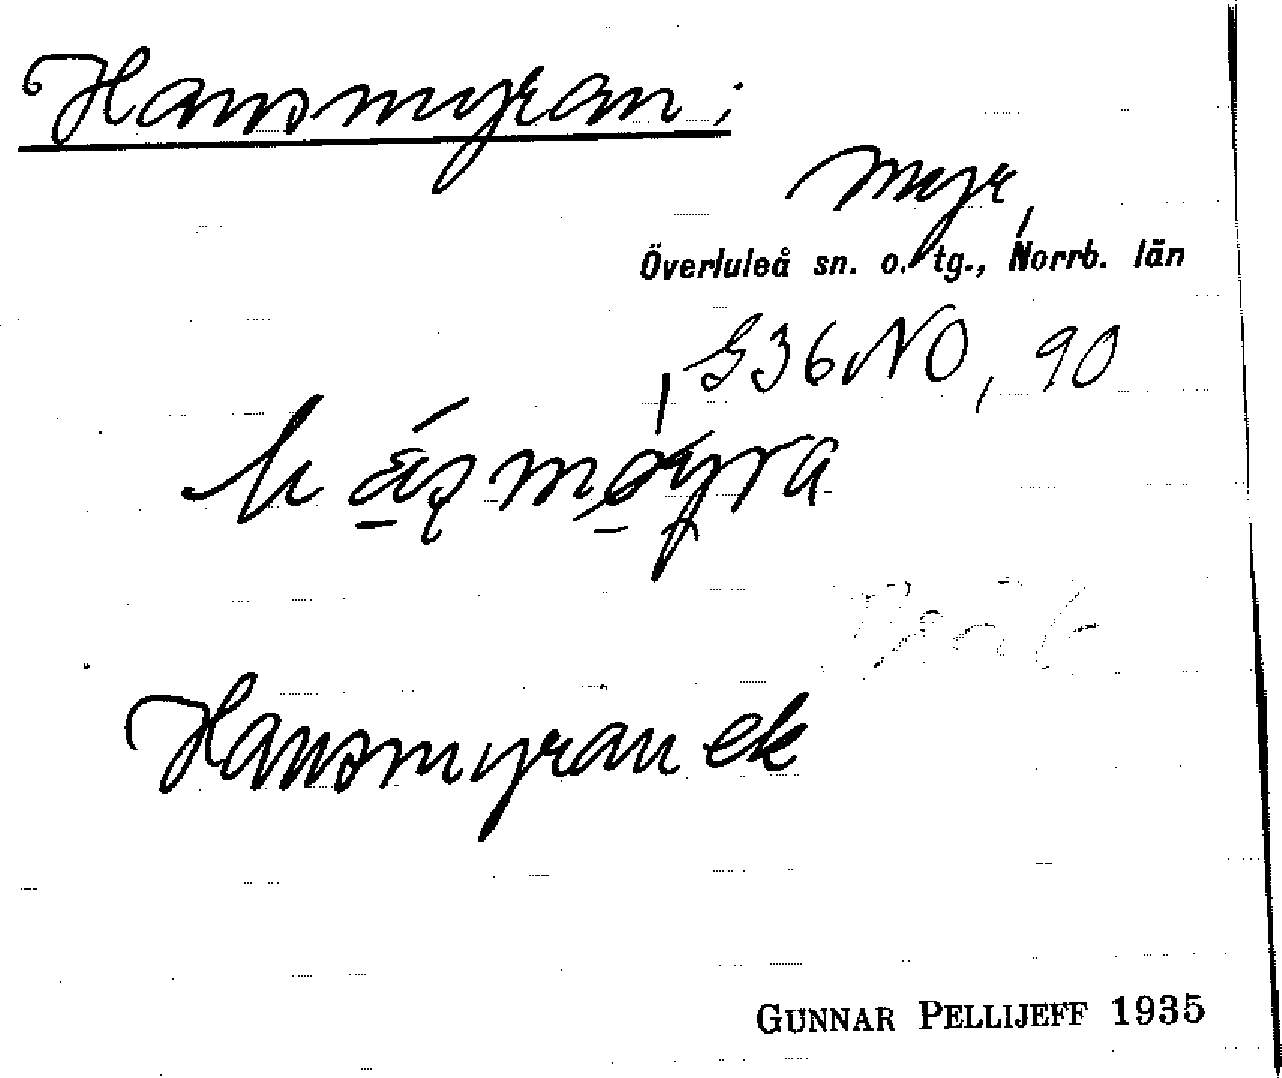 Hansmyran:
myr,
Överluleå sn. o. tg., Norrb. län
G36NO, 90
Hansmyran ek
GUNNAR PELLIJEFF 1935